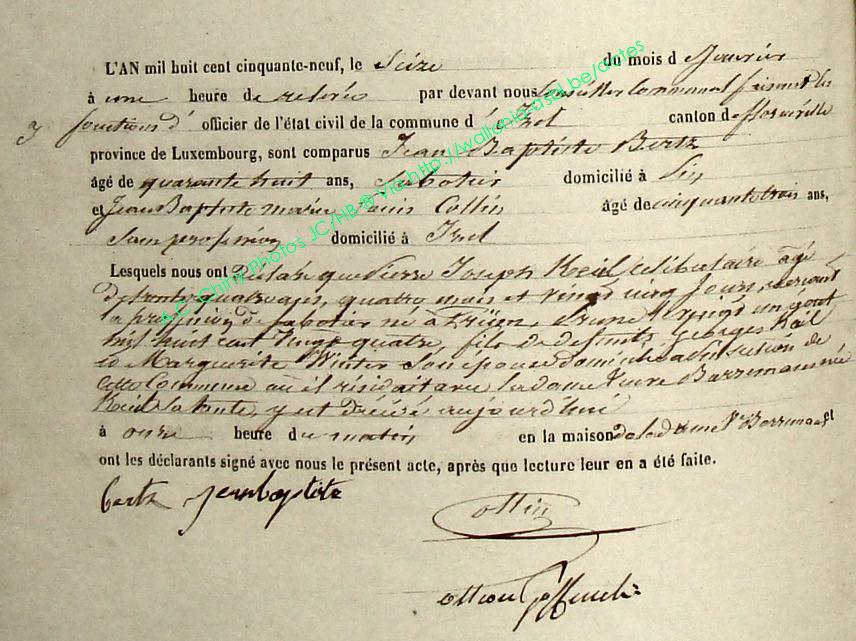 L'AN mil huit cent cinquante-neuf, le Seize du mois d Janvier
à une heure de relevée par devant nous Conseiller Communal faisant les
3 fonctions d' officier de l'état civil de la commune d' Izel canton de florenville
province de Luxembourg, sont comparus Jean Baptiste Bertz
âgé de quarante huit ans, Sabotier domicilié à
et Jean Baptiste marie Louis Collin âgé de cinquante trois ans,
Sans profession domicilié à Izel
Lesquels nous ont Déclaré que Pierre Joseph Keil Célibataire agé
de trente quatre ans, quatre mois et vingt cinq jours, exerçant
la profession de Sabotier né à le vingt un août
mil huit cent vingt quatre, fils de defunts Georges Keil
et Marguerite Winter son épouse domicilié à
cette Commune où il résidait avec la dame Veuve née
Keil sa tante, y est Décédé aujourd'hui
à onze heure du matin en la maison de la dame Ve et
ont les déclarants signé avec nous le présent acte, après que lecture leur en a été faite.
bertz jean baptiste
Collin
A.C. Chiny Photos JC/HB ® via http://wallonie-asbl.be/dates